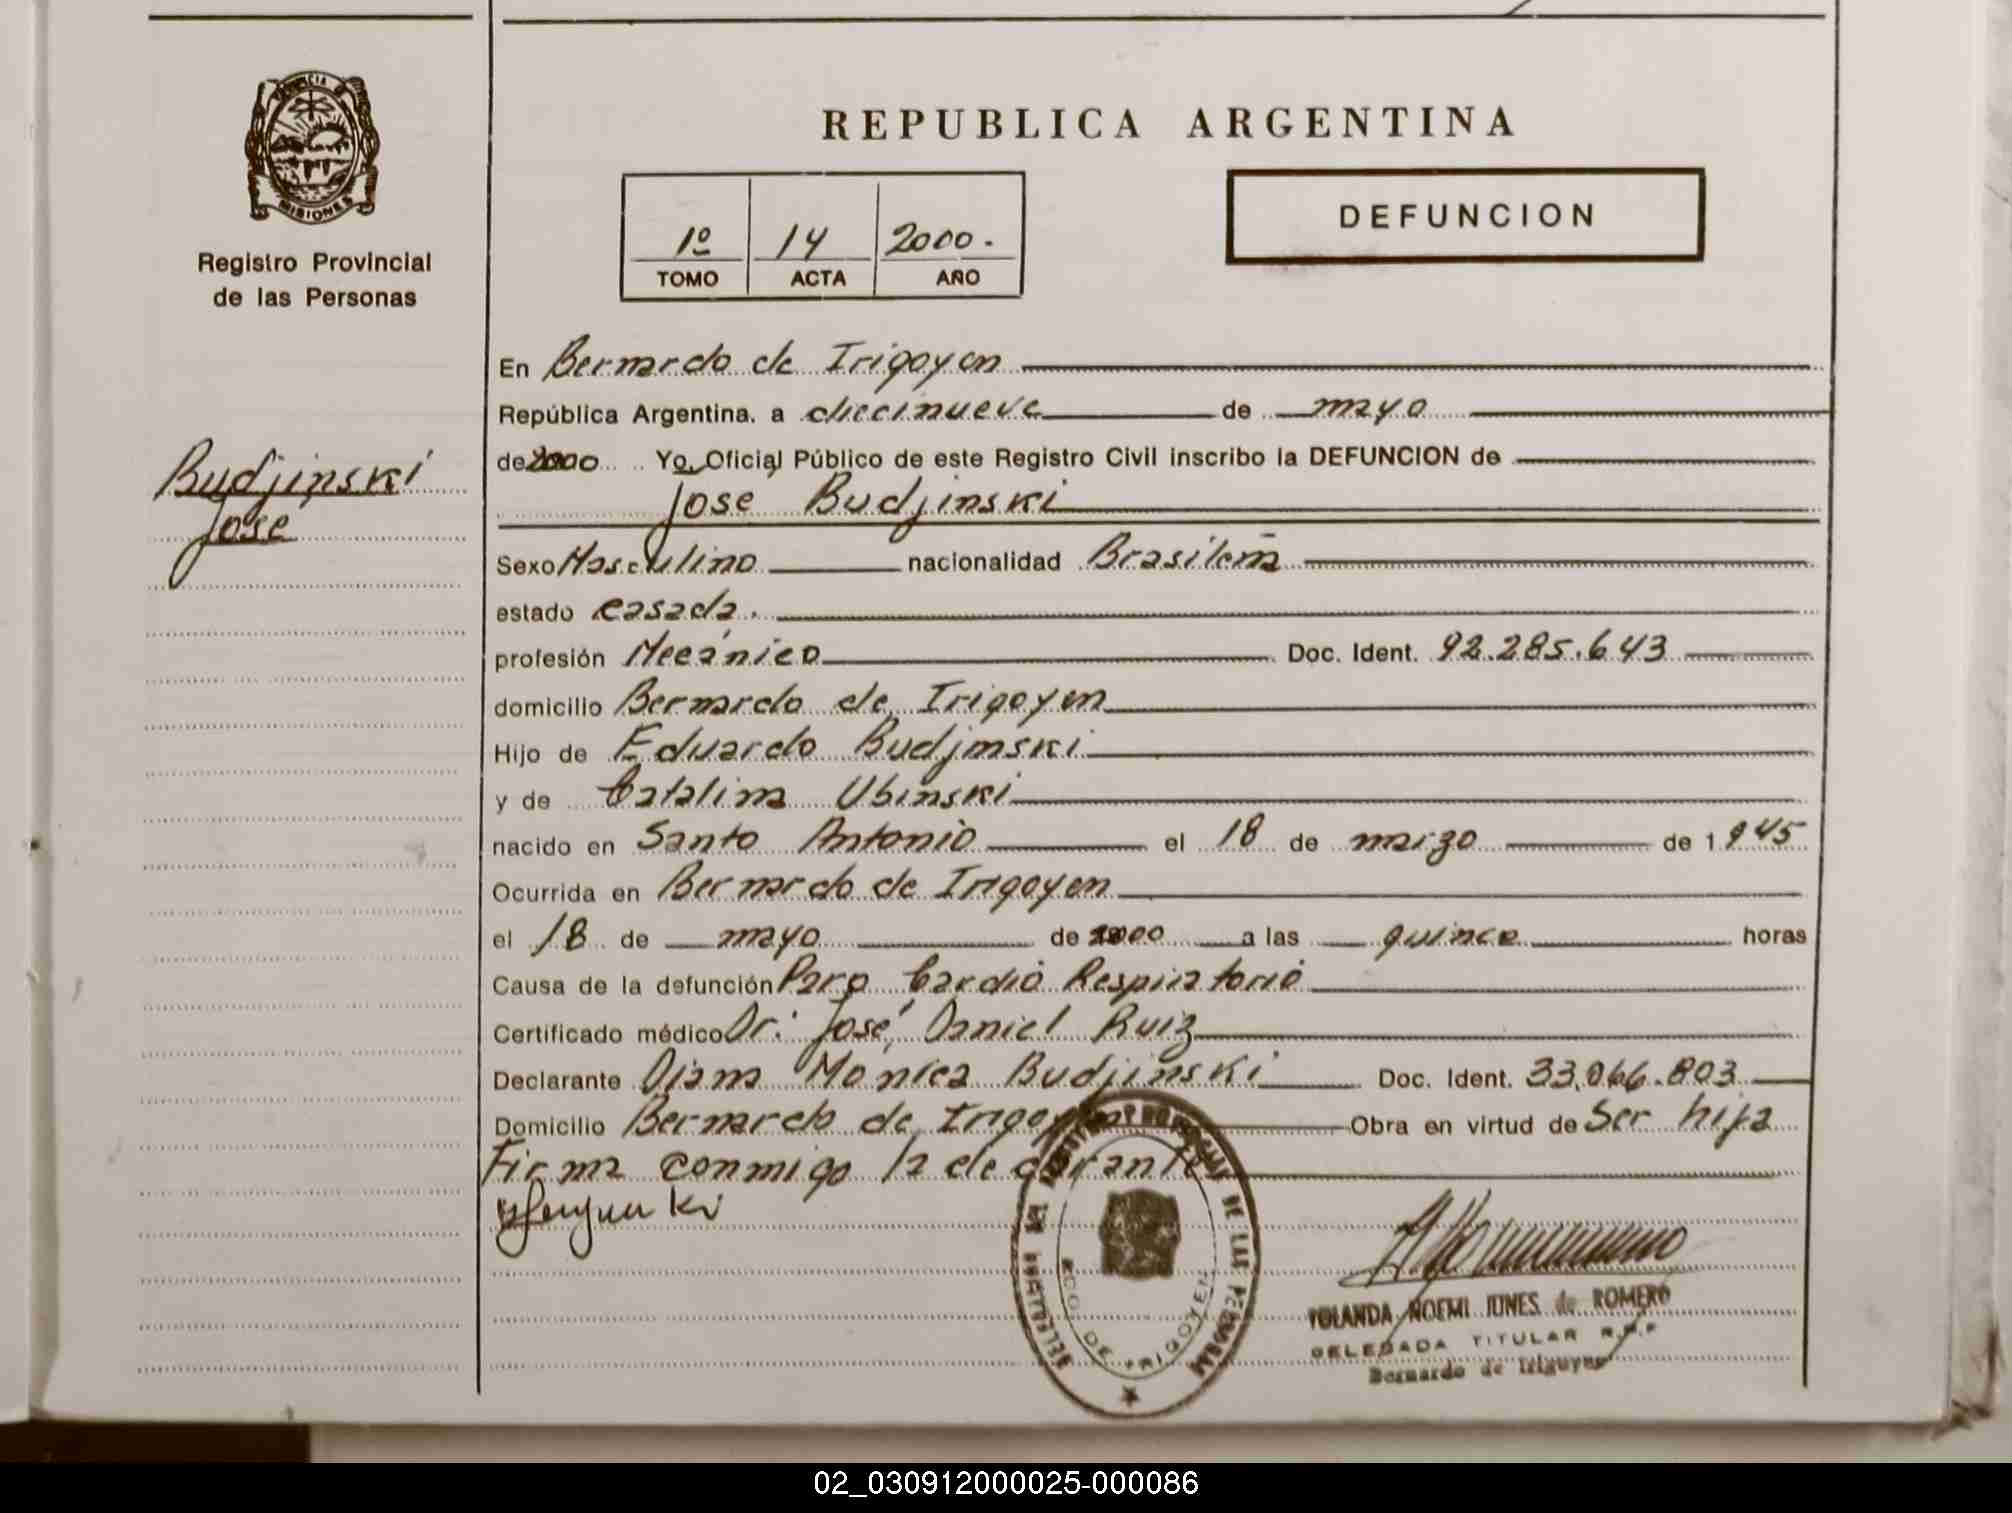 PROVINCIA DE MISIONES
Registro Provincial
de las Personas
REPUBLICA ARGENTINA
1º 14 2000.
TOMO ACTA AÑO
DEFUNCION
En Bernardo de Irigoyen
República Argentina. a diecinueve de mayo
de 2000 Yo, Oficial Público de este Registro Civil inscribo la DEFUNCION de
José Budjinski
Budjinski
José
Sexo Masculino nacionalidad Brasileña
estado casada.
profesión Mecánico Doc. Ident. 92.285.643
domicilio Bernardo de Irigoyen
Hijo de Eduardo Budjinski
y de Catalina Ubinski
nacido en Santo Antonio el 18 de marzo de 1945
Ocurrida en Bernardo de Irigoyen
el 18 de mayo de 2000 a las quince horas
Causa de la defunción Paro Cardio Respiratorio
Certificado médico Dr: José Daniel Ruiz
Declarante Diana Mónica Budjinski Doc. Ident. 33.066.803
Domicilio Bernardo de Irigoyen Obra en virtud de Ser hija
Firma conmigo la declarante
REGISTRO PROVINCIAL DE LAS PERSONAS
BDO. DE IRIGOYEN
YOLANDA NOEMI JUNES de ROMERO
DELEGADA TITULAR R.P.P
Bernardo de Irigoyen
02_030912000025-000086